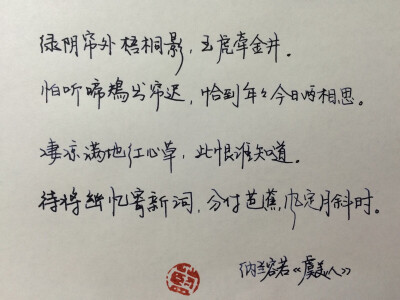 绿阴帘外梧桐影，玉虎牵金井。
怕听啼鴂出帘迟，恰到年々今日两相思。
凄凉满地红心草，此恨谁知道。
待将幽忆寄新词，分付芭蕉风定月斜时。
纳兰容若《虞美人》